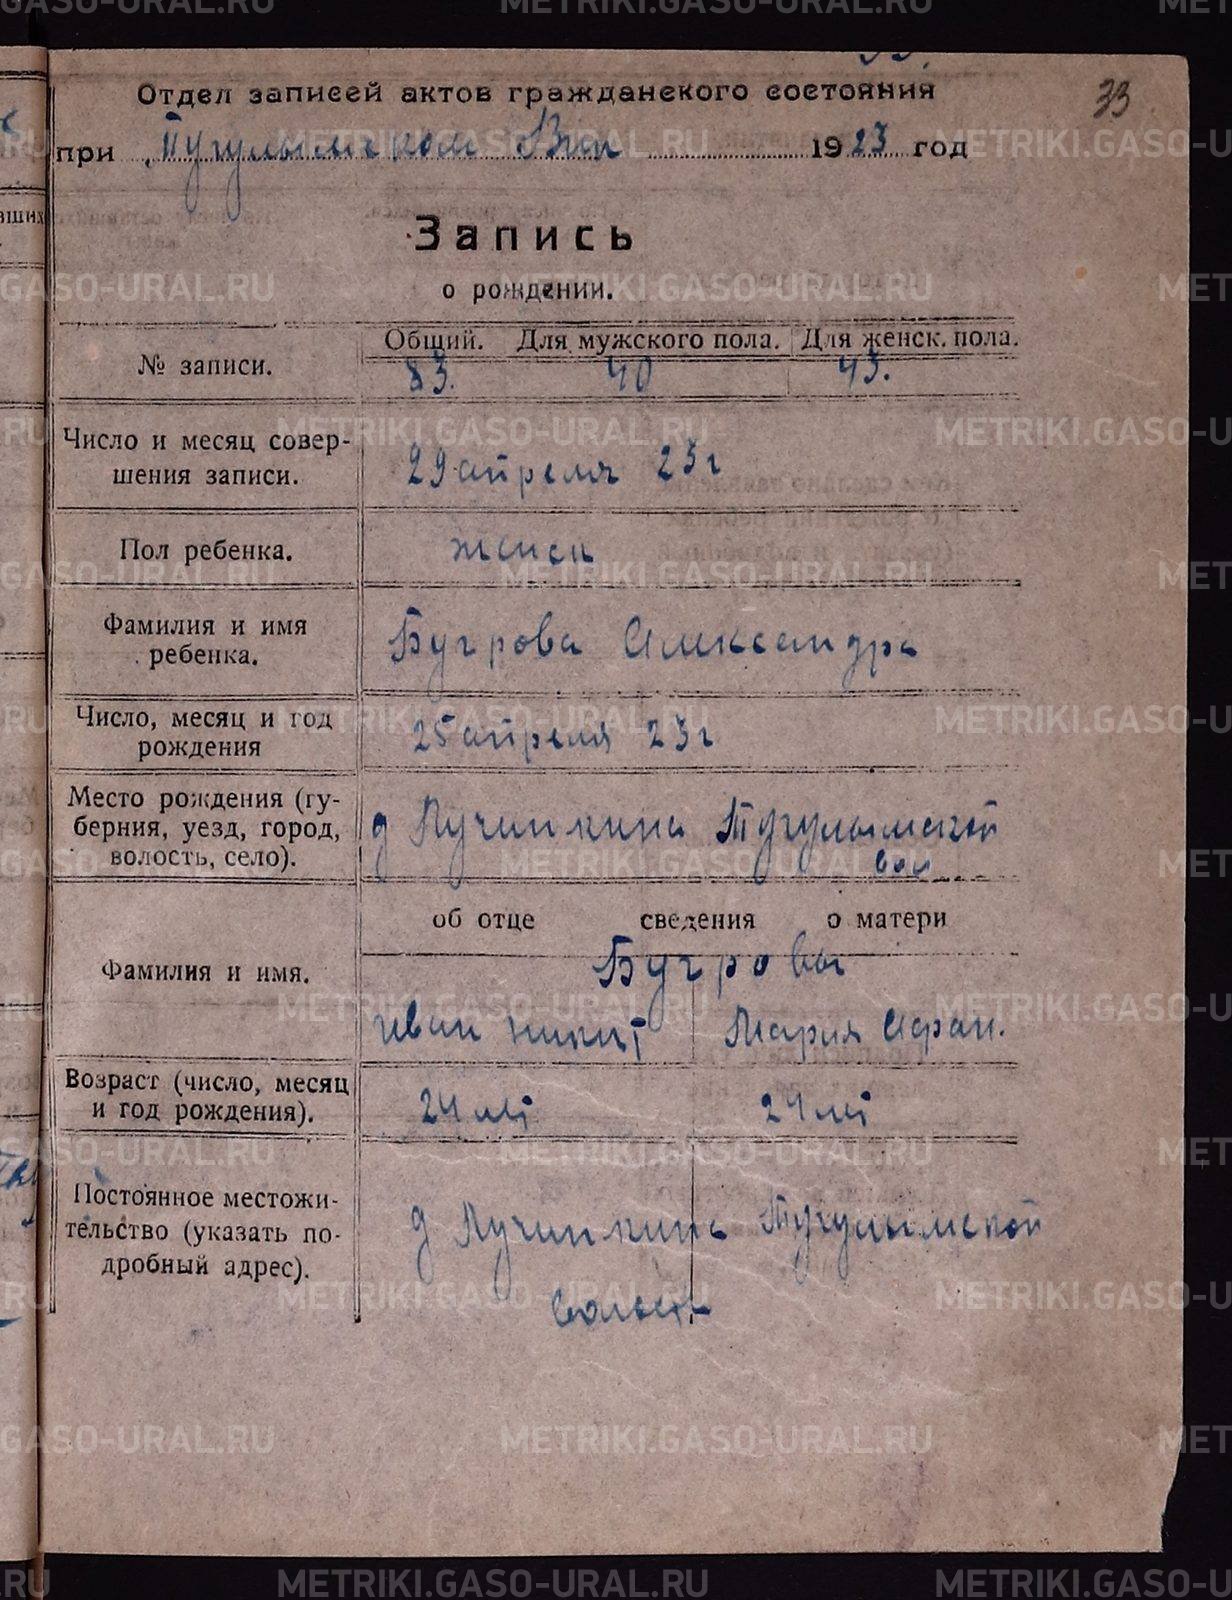 33
Отдел записей актов гражданского состояния
при Тугулымском Вик 1923 год
Запись
о рождении.
Общий. Для мужского пола. Для женск. пола.
№ записи. 83. 40 43.
Число и месяц совер-
шения записи. 29 апреля 23 г
Пол ребенка. женск
Фамилия и имя
ребенка. Бугрова Александра
Число, месяц и год
рождения 25 апреля 23 г
Место рождения (гу-
берния, уезд, город, д Лучинкина Тугулымской
волость, село). вол
об отце сведения о матери
Фамилия и имя. Бугровы
Иван Никит Мария Афан.
Возраст (число, месяц
и год рождения). 24 лет 24 лет
Постоянное местожи-
тельство (указать по- д Лучинкина Тугулымской
дробный адрес).
METRIKI.GASO-URAL.RU